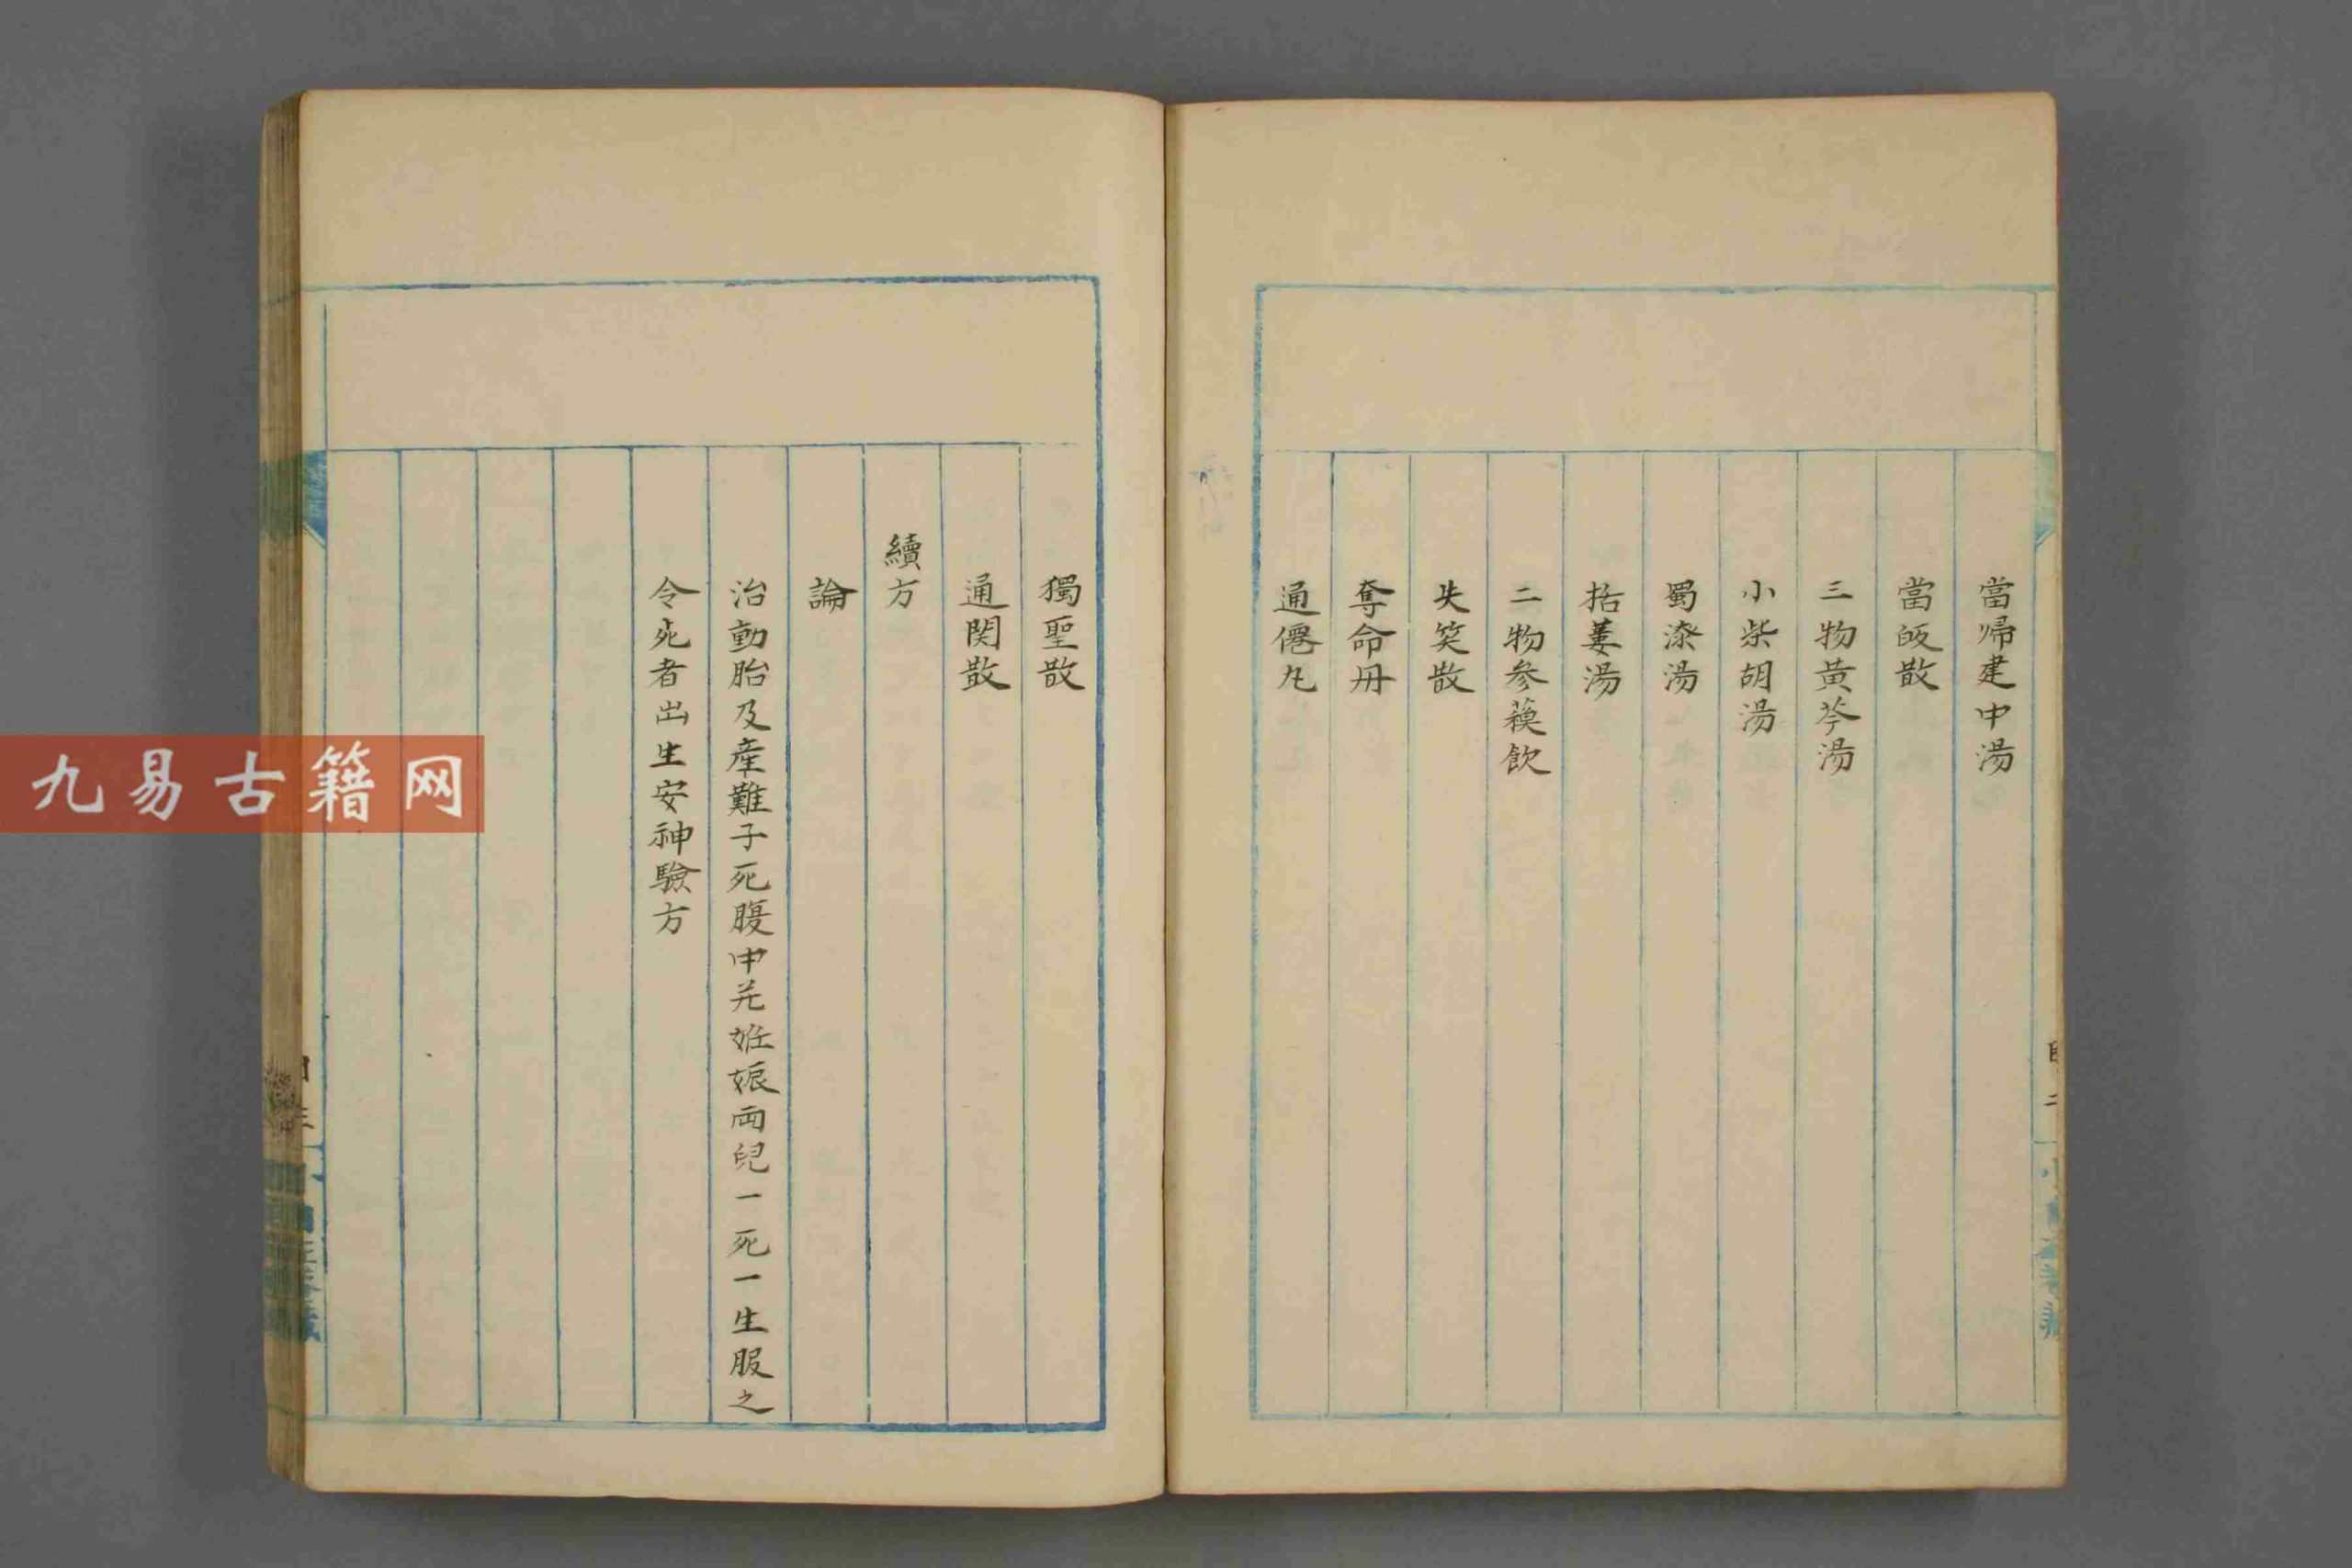 當帰建中湯
當皈散
三物黃芩湯
小柴胡湯
蜀漆湯
括蔞湯
二物參蘓飲
失笑散
奪命丹
通僊丸
獨聖散
通関散
續方
論
治動胎及産難子死腹中并姙娠両兒一死一生服之
令死者出生安神驗方
九易古籍网